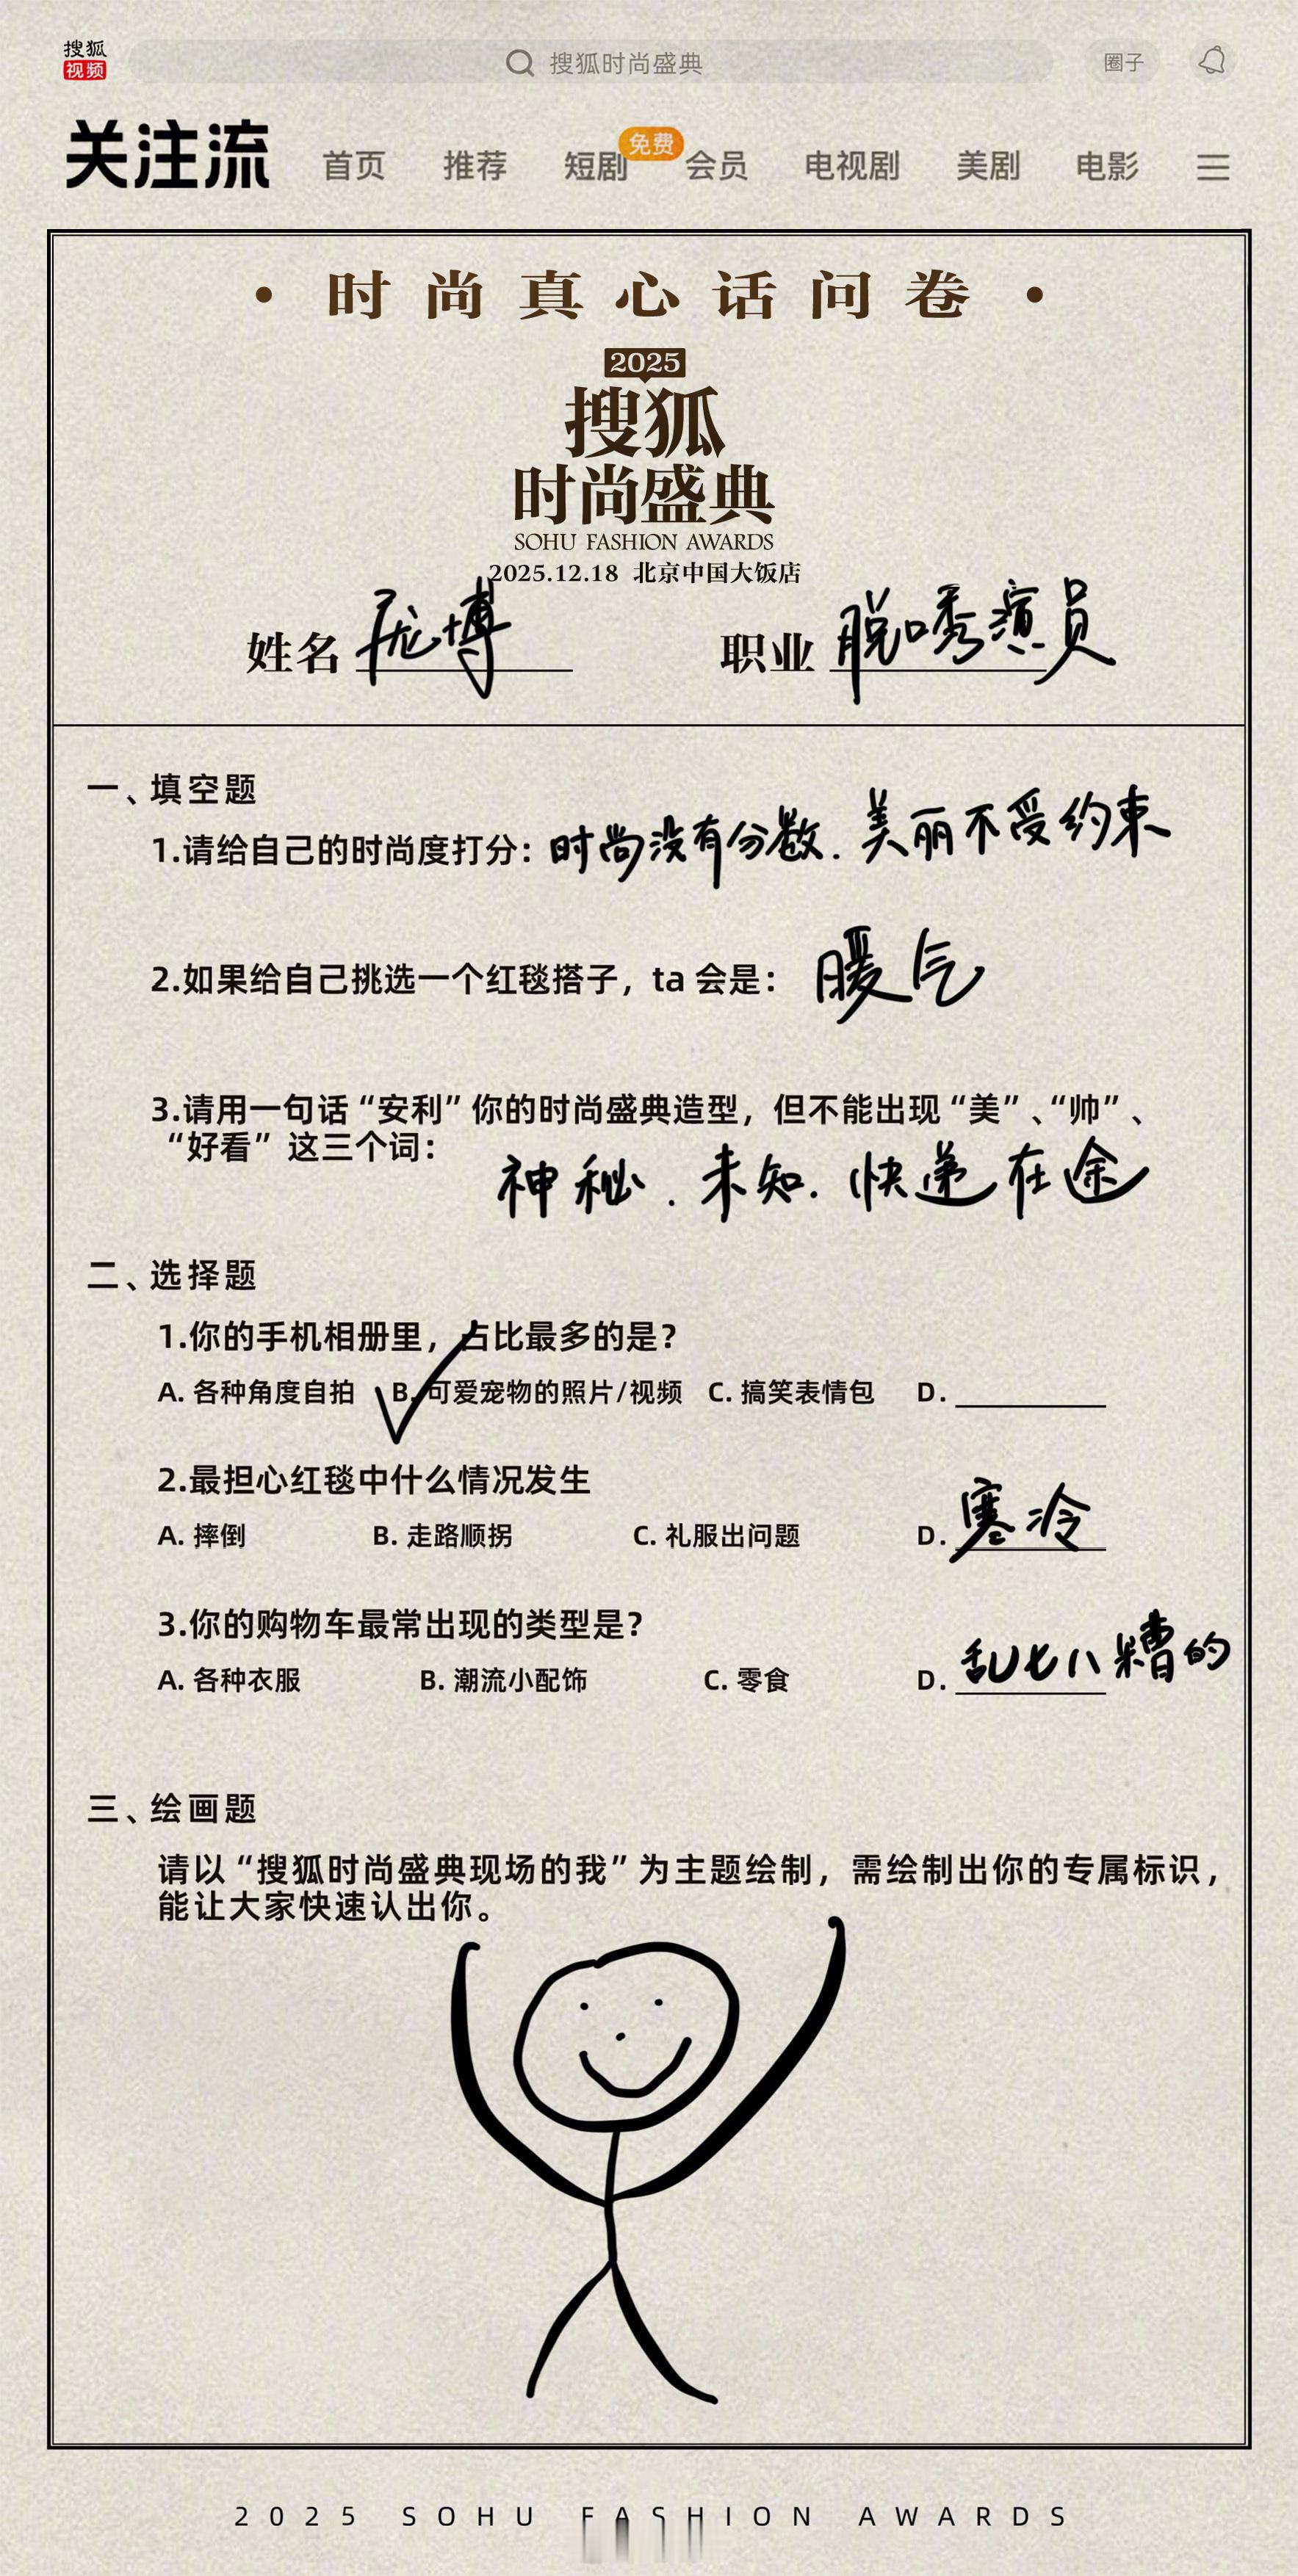 搜狐
视频
搜狐时尚盛典
圈子
关注流 首页 推荐 短剧 免费 会员 电视剧 美剧 电影
• 时尚真心话问卷 •
2025
搜狐
时尚盛典
SOHU FASHION AWARDS
2025.12.18 北京中国大饭店
姓名 庞博 职业 脱口秀演员
一、填空题
1.请给自己的时尚度打分：时尚没有分数.美丽不受约束
2.如果给自己挑选一个红毯搭子，ta 会是： 暖气
3.请用一句话“安利”你的时尚盛典造型，但不能出现“美”、“帅”、
“好看”这三个词：
神秘.未知.快递在途
二、选择题
1.你的手机相册里，占比最多的是？
A. 各种角度自拍 B. 可爱宠物的照片/视频 C. 搞笑表情包 D.
2.最担心红毯中什么情况发生
A. 摔倒 B. 走路顺拐 C. 礼服出问题 D. 寒冷
3.你的购物车最常出现的类型是？
A. 各种衣服 B. 潮流小配饰 C. 零食 D. 乱七八糟的
三、绘画题
请以“搜狐时尚盛典现场的我”为主题绘制，需绘制出你的专属标识，
能让大家快速认出你。
2025 SOHU FASHION AWARDS